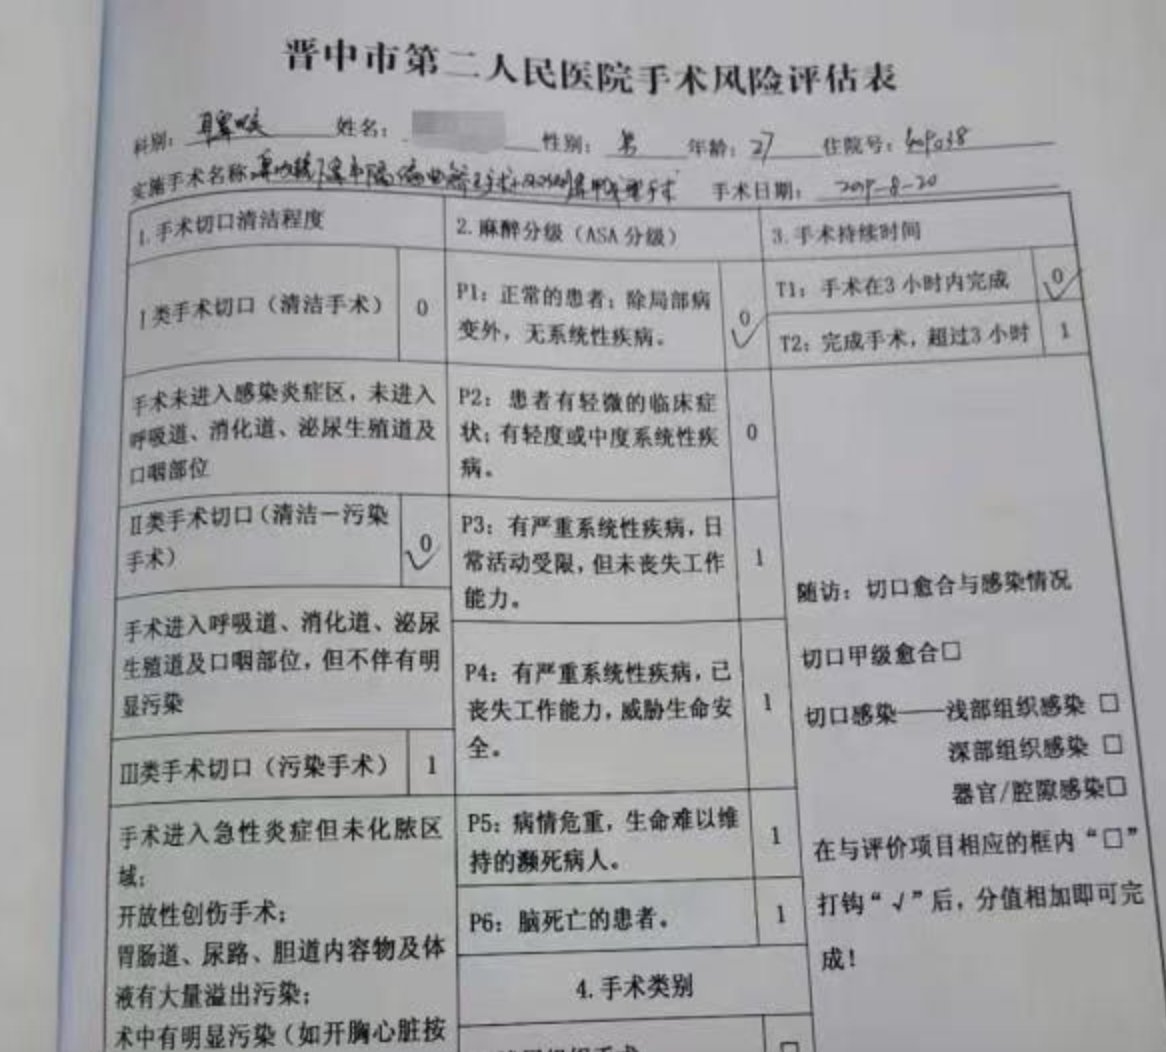 晋中市第二人民医院手术风险评估表
科别：耳鼻喉 姓名： 性别：男 年龄：27 住院号：
实施手术名称 手术日期： 8-20
1.手术切口清洁程度 2.麻醉分级（ASA分级） 3.手术持续时间
I类手术切口（清洁手术） 0
P1：正常的患者；除局部病
变外，无系统性疾病。 0 √
T1：手术在3小时内完成 0 √
T2：完成手术，超过3小时 1
手术未进入感染炎症区，未进入
呼吸道、消化道、泌尿生殖道及
口咽部位
P2：患者有轻微的临床症
状；有轻度或中度系统性疾 0
病。
II类手术切口（清洁－污染
手术） 0 √
P3：有严重系统性疾病，日
常活动受限，但未丧失工作 1
能力。
手术进入呼吸道、消化道、泌尿
生殖道及口咽部位，但不伴有明
显污染
P4：有严重系统性疾病，已
丧失工作能力，威胁生命安 1
全。
III类手术切口（污染手术） 1
手术进入急性炎症但未化脓区
域；
开放性创伤手术；
胃肠道、尿路、胆道内容物及体
液有大量溢出污染；
术中有明显污染（如开胸心脏按
P5：病情危重，生命难以维
持的濒死病人。 1
P6：脑死亡的患者。 1
4.手术类别
随访：切口愈合与感染情况
切口甲级愈合□
切口感染——浅部组织感染 □
深部组织感染 □
器官/腔隙感染□
在与评价项目相应的框内“□”
打钩“√”后，分值相加即可完
成！